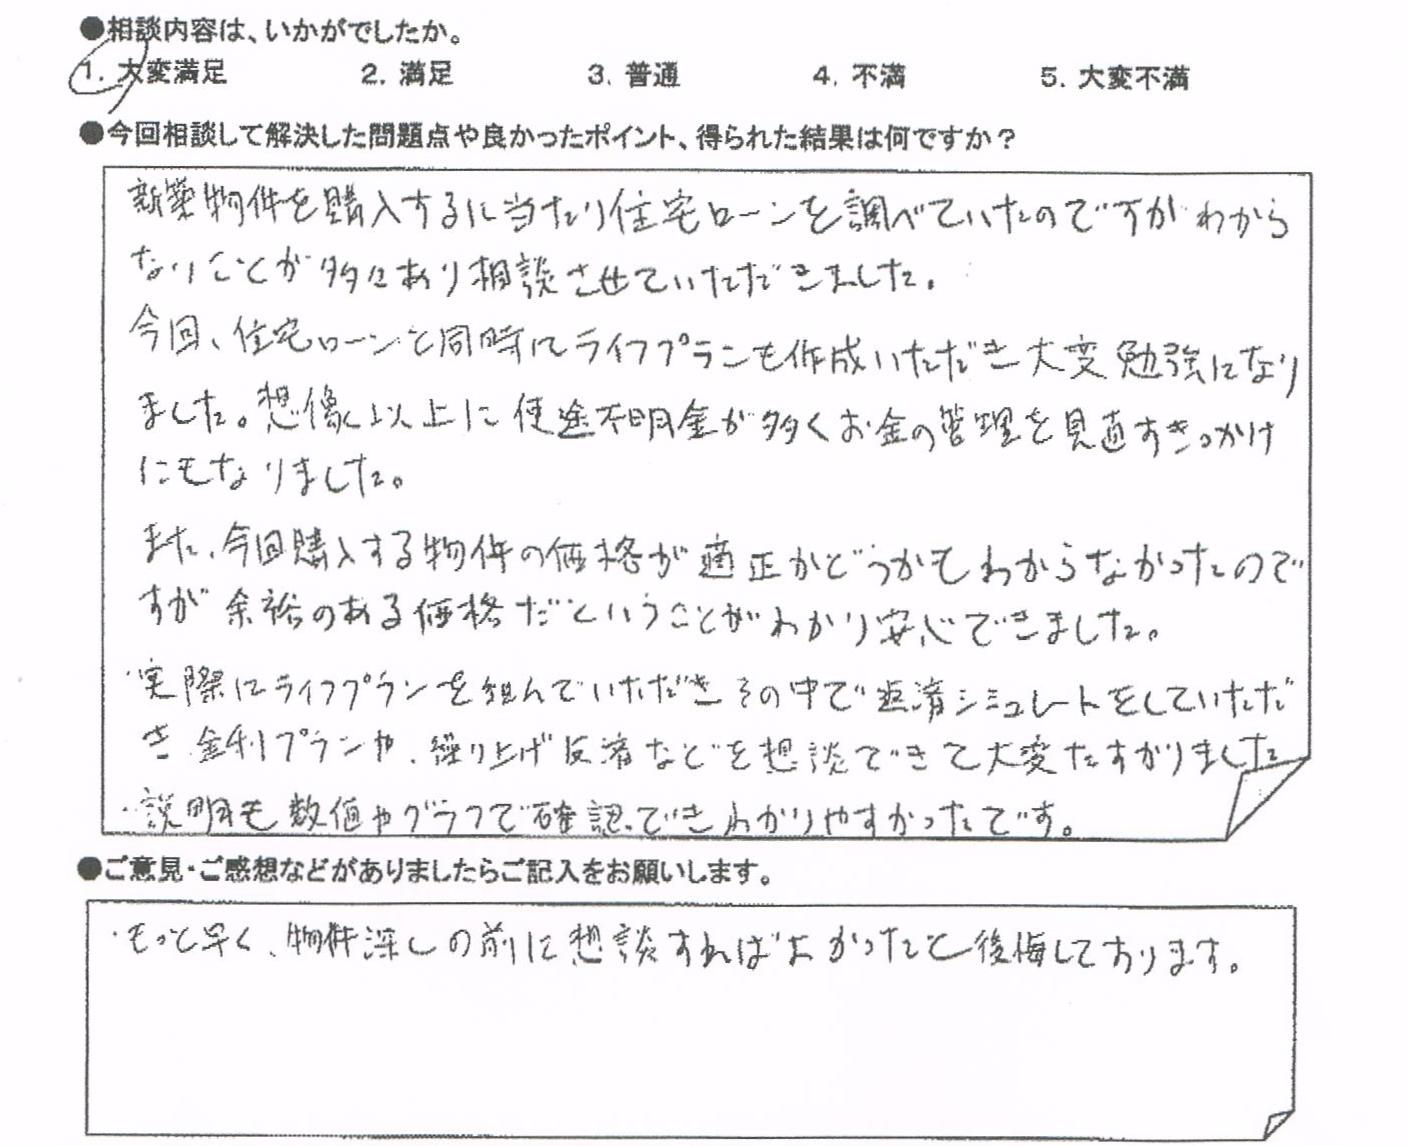 ●相談内容は、いかがでしたか。
1. 大変満足 2. 満足 3. 普通 4. 不満 5. 大変不満
●今回相談して解決した問題点や良かったポイント、得られた結果は何ですか?
新築物件を購入するに当たり住宅ローンを調べていたのですがわから
ないことが多々あり相談させていただきました。
今回、住宅ローンと同時にライフプランも作成いただき大変勉強になり
ました。想像以上に使途不明金が多くお金の管理を見直すきっかけ
にもなりました。
また、今回購入する物件の価格が適正かどうかもわからなかったので
すが余裕のある価格だということがわかり安心できました。
・実際にライフプランを組んでいただきその中で返済シミュレートをしていただ
き金利プランや、繰り上げ返済などを想談できて大変たすかりました
・説明も数値やグラフで確認できわかりやすかったです。
●ご意見・ご感想などがありましたらご記入をお願いします。
・もっと早く、物件探しの前に想談すればよかったと後悔しております。